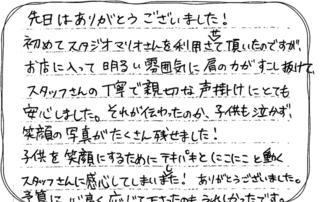 先日はありがとうございました!
初めてスタジオマリオさんを利用させて頂いたのですが、
お店に入って明るい雰囲気に肩の力がすこし抜けて、
スタッフさんの丁寧で親切な声掛けにとても
安心しました。それが伝わったのか、子供も泣かず、
笑顔の写真がたくさん残せました!
子供を笑顔にするためにテキパキとにこにこと働く
スタッフさんに感心してしまいました!ありがとうございました。
予算に心良く応じて下さったのもうれしかったです。